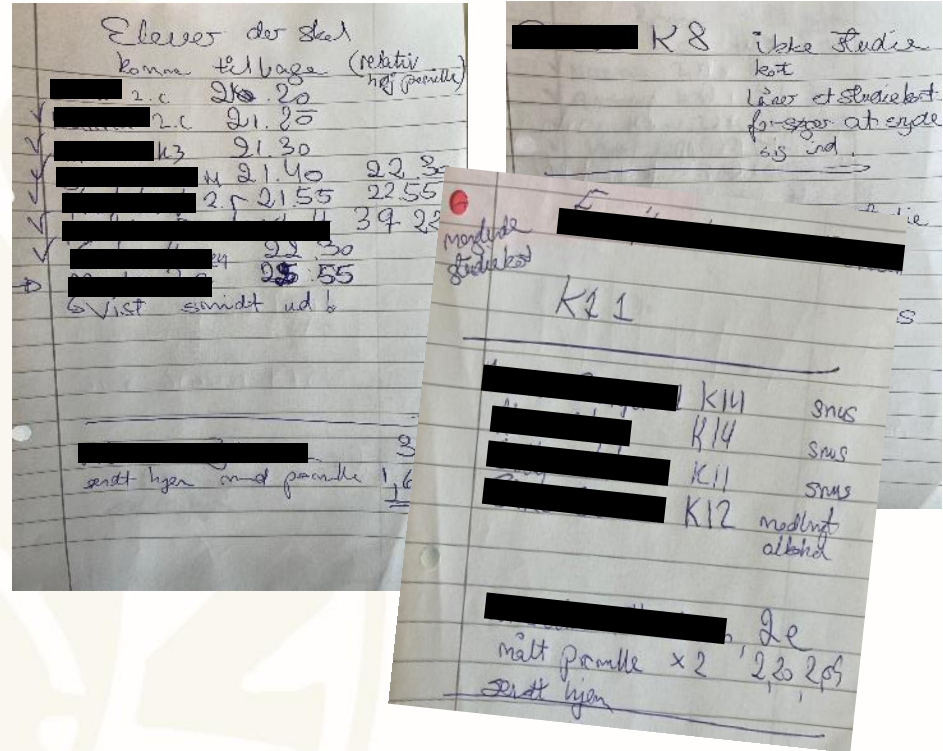 Elever der skal
komme tilbage (relativ
høj promille)
2.c 20.20
2.c 21.20
K3 21.30
21.40 22.3
21.55 22.55
39 22
22.30
25.55
Vist smidt ud
3
sendt hjem med promille 1,6
K8 ikke studie
kort
låner et studiekort
at snyde
sig ind.
S
manglende
studiekort
K11
K14 snus
K14 snus
K11 snus
K12 medbragt
alkohol
2e
målt promille x2 2,20 2,05
sendt hjem